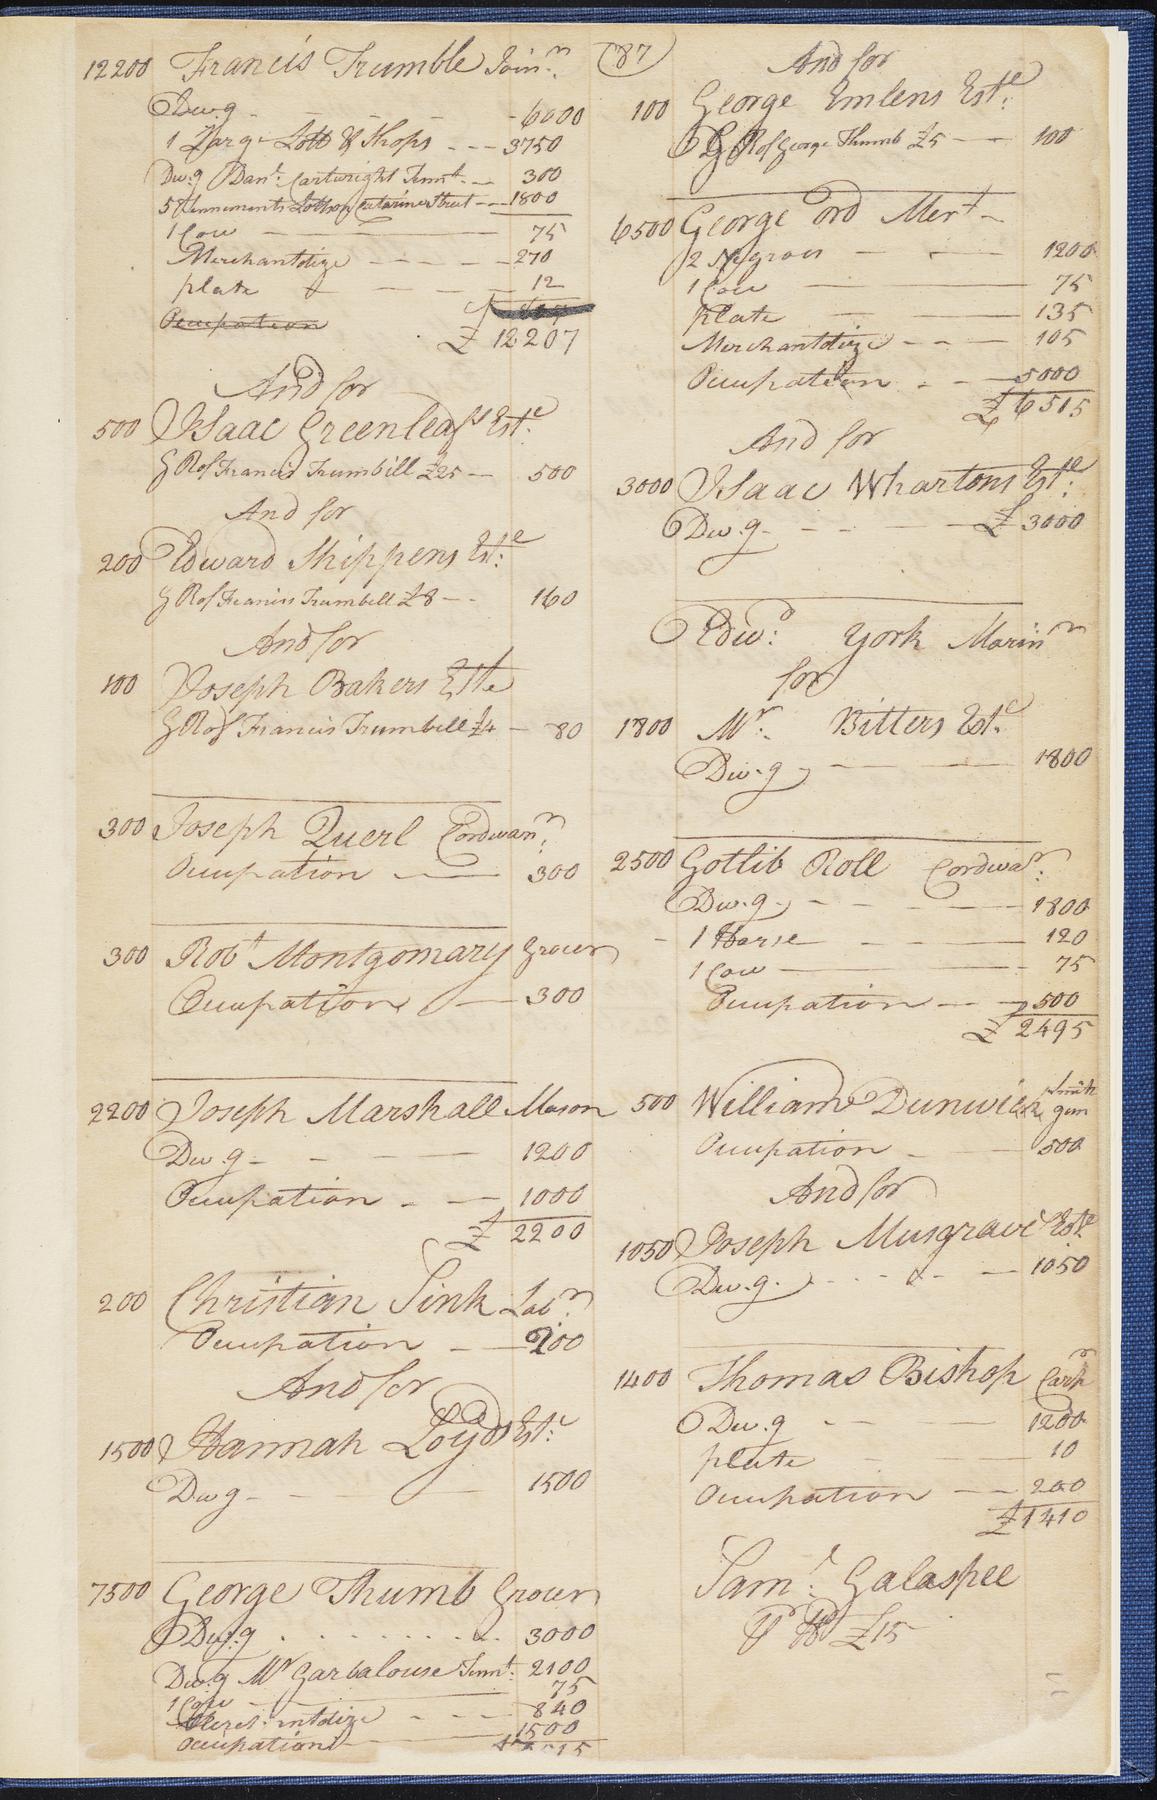 87
12200 Francis Trumble Join.r
Dw.g - - - 6000
1 Large Lott & Shops - - - 3750
Dw.g Dan.l Cartwright Tennt. - 300
5 Tennements Lotts on Catarine Street - - 1800
1 Cow - 75
Merchantdize - - - - 270
plate - - - 12
Occupation
£ 12207
And for
500 Isaac Greenleafs Est.e
G R of Francis Trumbill £25 - 500
And for
200 Edward Shippens Est.e
G R of Francis Trumbill £8 - - 160
And for
100 Joseph Bakers Este
G R of Francis Trumbill £4 - 80
300 Joseph Querl Cordwan.r
Occupation - 300
300 Robt Montgomary Grocer
Occupation - 300
2200 Joseph Marshall Mason
Dw.g - - - - 1200
Occupation - - 1000
£ 2200
200 Christian Sink Lab.r
Occupation - - 200
And for
1500 Hannah Loyds Est.e
Dwg - - - 1500
7500 George Thumb Grocer
Dw.g . . . . . . . . 3000
Dw.g Mr Garbalouse Tennt. 2100
1 Cow - 75
Merct.ntdize - - - 840
Occupation - 1500
And for
100 George Emlens Est.e
G R of George Thumb £5 - - 100
6500 George Ord Mert -
2 Negroes - - - 1200
1 Cow - 75
plate - - 135
Merchantdize - - - 105
Occupation - - 5000
£ 6515
And for
3000 Isaac Whartons Est.e
Dw.g - - - - £ 3000
Edw.d York Marin.r
for
1800 Mr. Bitters Est.e
Dw.g - - 1800
2500 Gotlib Roll Cordwa.r
Dw.g - - - 1800
- 1 Horse - - - 120
1 Cow - - 75
Occupation - - 500
£ 2495
500 William Dunwick gun Smith
Occupation - - 500
And for
1050 Joseph Musgrave Est.e
Dw.g . . . - - 1050
1400 Thomas Bishop Carp.r
Dw.g - - - 1200
plate - - 10
Occupation - - 200
£ 1410
Sam.l Galaspee
£15